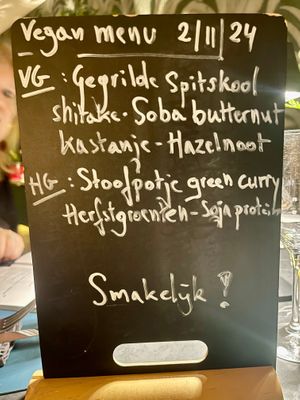 Vegan menu 2/11/24
VG: Gegrilde Spitskool
shitake-Soba butternut
kastanje-Hazelnoot
HG: Stoofpotje green curry
Herfstgroenten-Sojaprotein
Smakelijk!